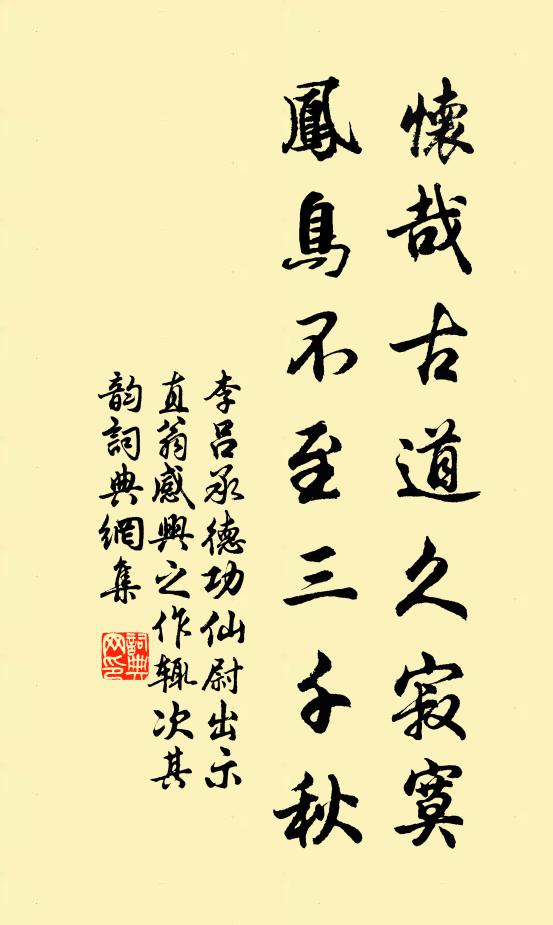 懷哉古道久寂寞
鳳鳥不至三千秋
李吕承德功仙尉出示
直翁感興之作輒次其
韵詞典網集
詞典
网印